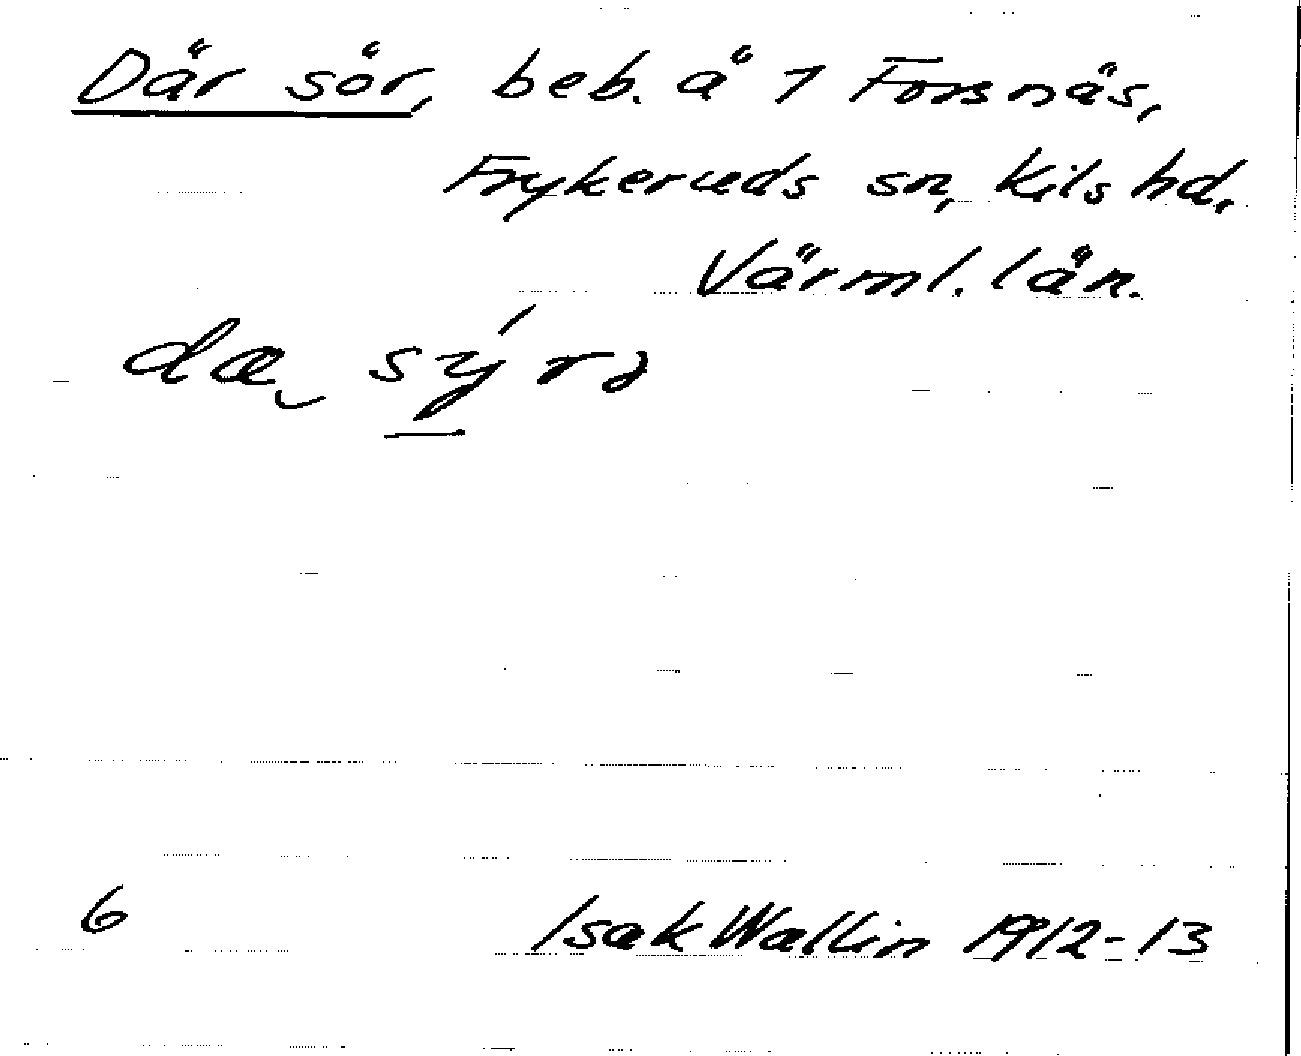 Där sör, beb. å 1 Forsnäs,
Frykeruds sn, Kils hd,
Värml. län.
dæ sýrə
6 Isak Wallin 1912-13